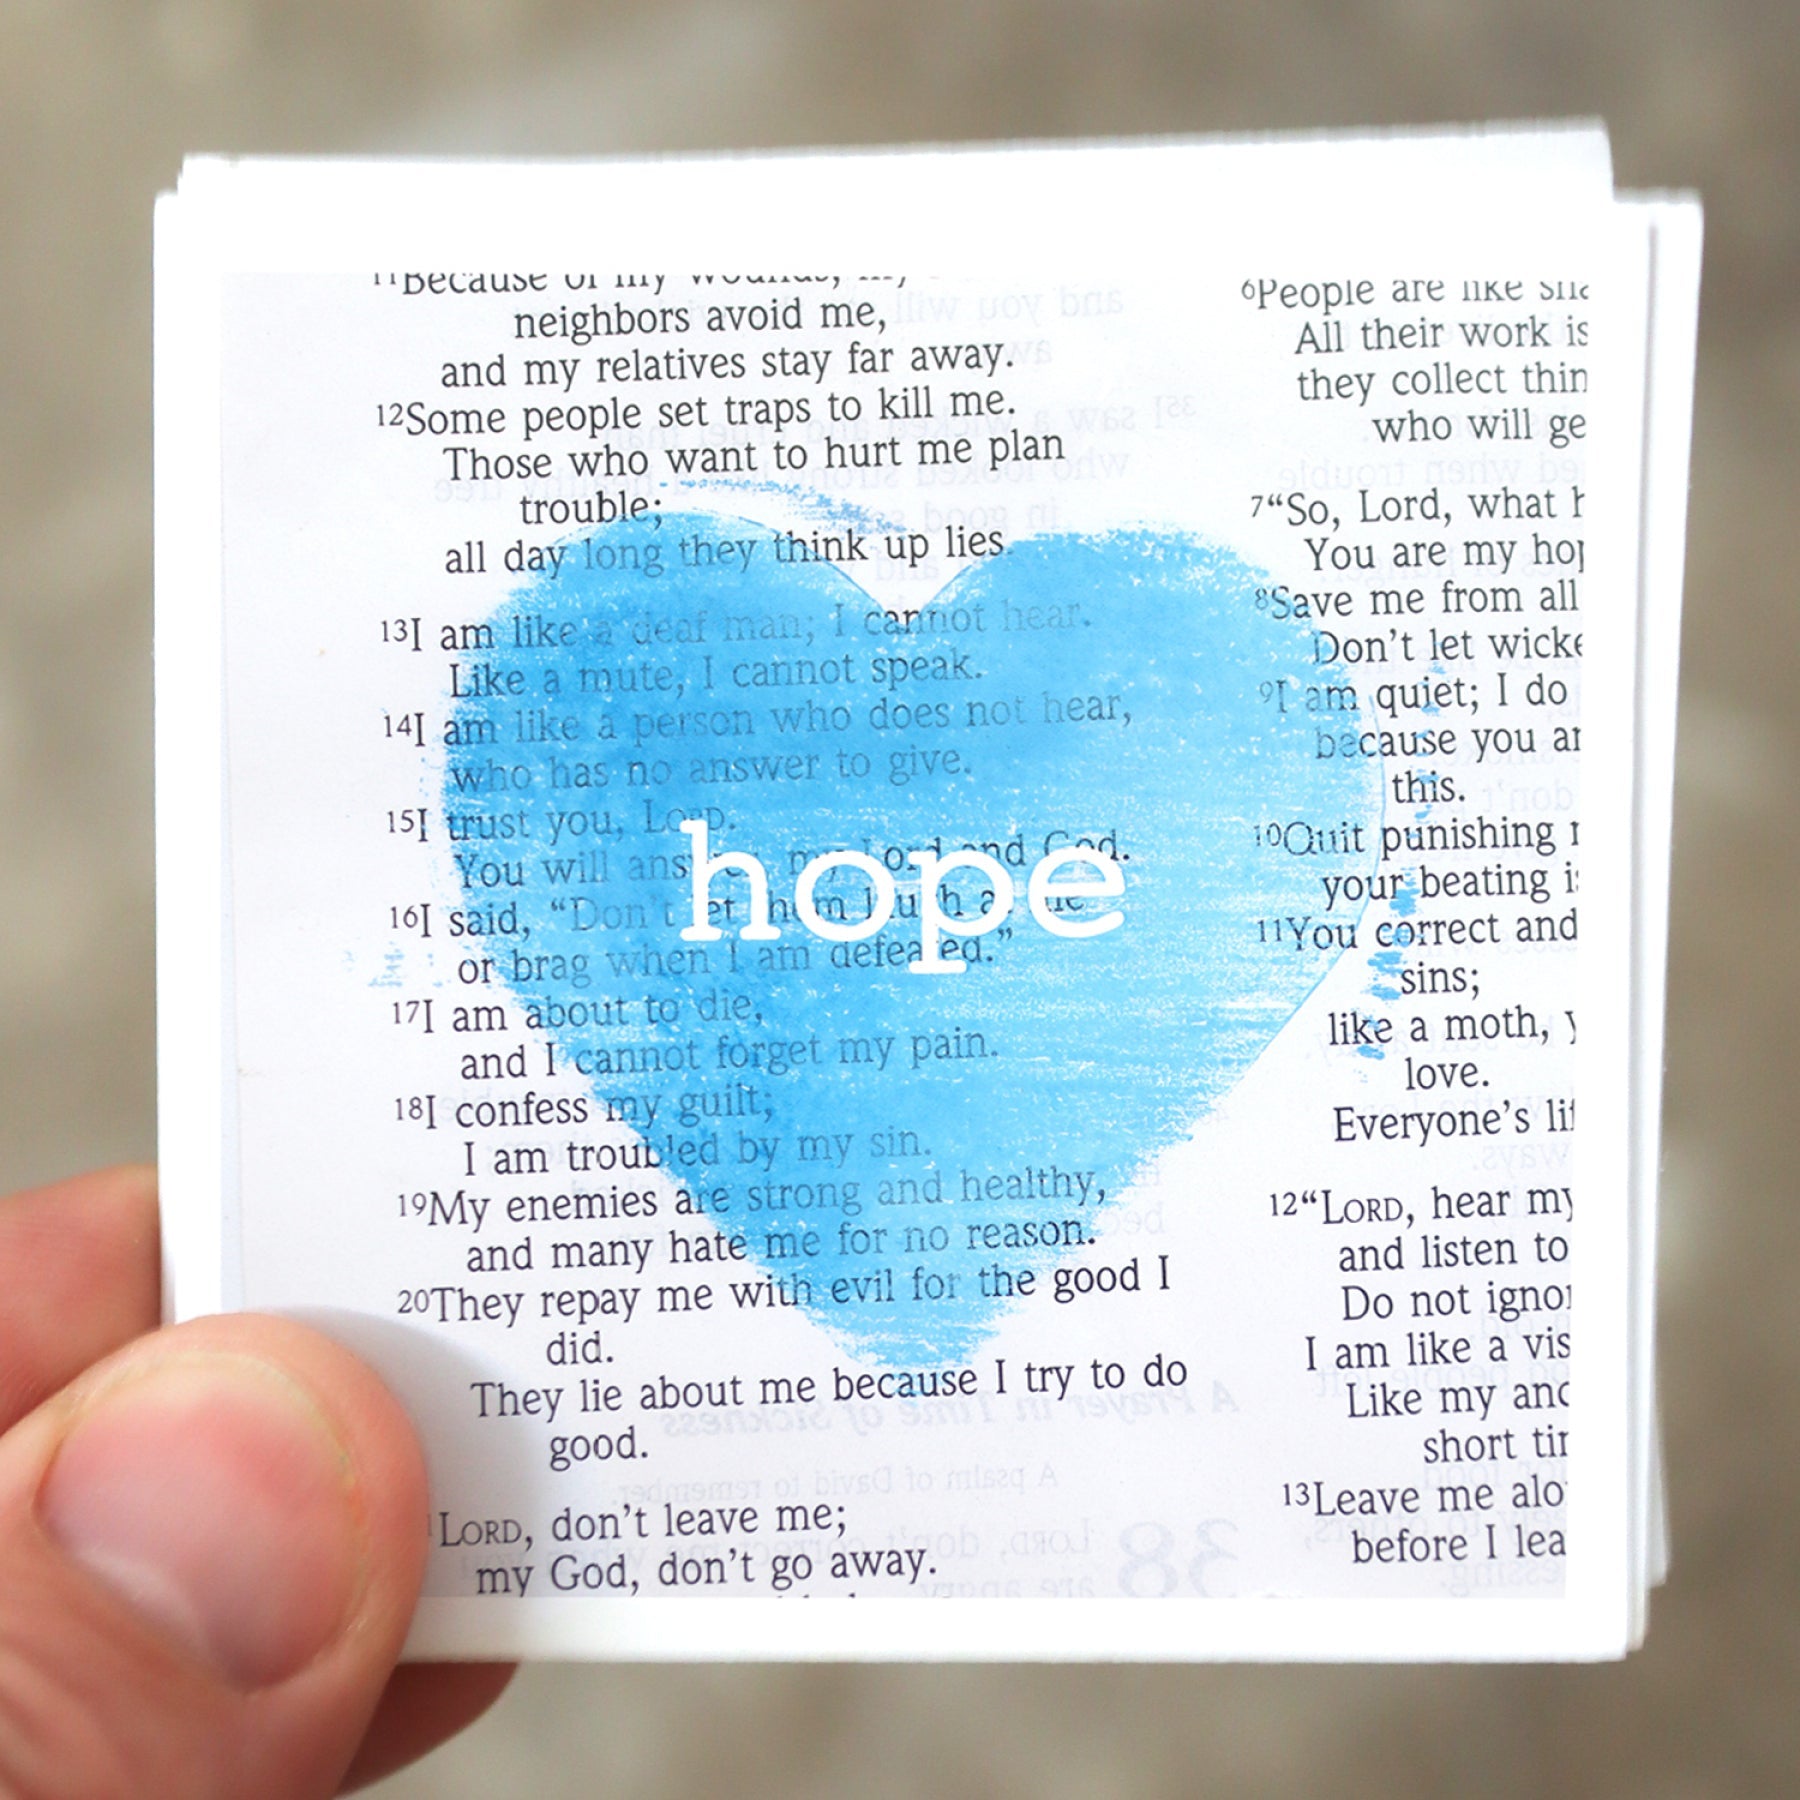 11Because of my wounds, my
neighbors avoid me,
and my relatives stay far away.
12Some people set traps to kill me.
Those who want to hurt me plan
trouble;
all day long they think up lies.
13I am like a deaf man; I cannot hear.
Like a mute, I cannot speak.
14I am like a person who does not hear,
who has no answer to give.
15I trust you, LORD.
You will answer, my Lord and God.
16I said, “Don't let them laugh at me
or brag when I am defeated.”
17I am about to die,
and I cannot forget my pain.
18I confess my guilt;
I am troubled by my sin.
19My enemies are strong and healthy,
and many hate me for no reason.
20They repay me with evil for the good I
did.
They lie about me because I try to do
good.
LORD, don't leave me;
my God, don't go away.
hope
6People are like
All their work is
they collect thin
who will ge
7“So, Lord, what h
You are my hop
8Save me from all
Don't let wicke
9I am quiet; I do
because you ar
this.
10Quit punishing
your beating i
11You correct and
sins;
like a moth, y
love.
Everyone's lif
12“LORD, hear my
and listen to
Do not ignor
I am like a vis
Like my anc
short tim
13Leave me alo
before I lea